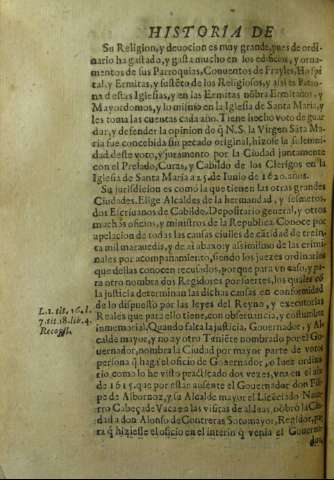 HISTORIA DE
Su Religion, y deuocion es muy grande, pues de ordi-
nario ha gastado, y gasta mucho en los edificios, y orna-
mentos de sus Parroquias, Conuentos de Frayles, Hospi-
tal, y Ermitas, y sustēto de los Religiosos, y assi es Patro-
na destas Iglesias, y en las Ermitas nōbra Ermitaños, y
Mayordomos, y lo mismo en la Iglesia de Santa Maria, y
les toma las cuentas cada año. Tiene hecho voto de guar-
dar, y defender la opinion de q̃ N.S. la Virgen Sāta Ma-
ria fue concebida sin pecado original, hizose la solemni-
dad deste voto, y juramento por la Ciudad juntamente
con el Prelado, Curas, y Cabildo de los Clerigos en la
Iglesia de Santa Maria a 25. de Iunio de 1620. años.
Su jurisdicion es como la que tienen las otras grandes
Ciudades. Elige Alcaldes de la hermandad, y sesmeros,
dos Escriuanos de Cabildo, Depositario general, y otros
muchos oficios, y ministros de la Republica. Conoce por
apelacion de todas las causas ciuiles de cātidad de trein-
ta mil marauedis, y de ai abaxo y assimismo de las crimi-
nales por acompañamiento, siendo los juezes ordinarios
que dellas conocen recusados, porque para vn caso, y pa-
ra otro nombra dos Regidores por juezes, los quales cō
la justicia determinan las dichas causas en conformidad
de lo dispuesto por las leyes del Reyno, y executorias
Reales que para ello tiene, con obseruancia, y costumbre
inmemorial. Quando falta la justicia, Gouernador, y Al-
calde mayor, y no ay otro Teniēte nombrado por el Go-
uernador, nombra la Ciudad por mayor parte de votos
persona q̃ haga el oficio de Gouernador, o luez ordina-
rio, como lo he visto practicado dos vezes, vna en el año
de 1615. que por estar ausente el Gouernador don Fili-
pe de Albornoz, y su Alcalde mayor el Licēciado Naua-
rro Cabeça de Vaca en las visitas de aldeas, nōbrò la Ciu-
dad a don Alonso de Contreras Sotomayor, Regidor, pa-
ra q̃ hiziesse el oficio en el interin q̃ venia el Gouerna-
dor,
L.1. tit. 16. l.
7. tit. 18. lib. 4.
Recopil.